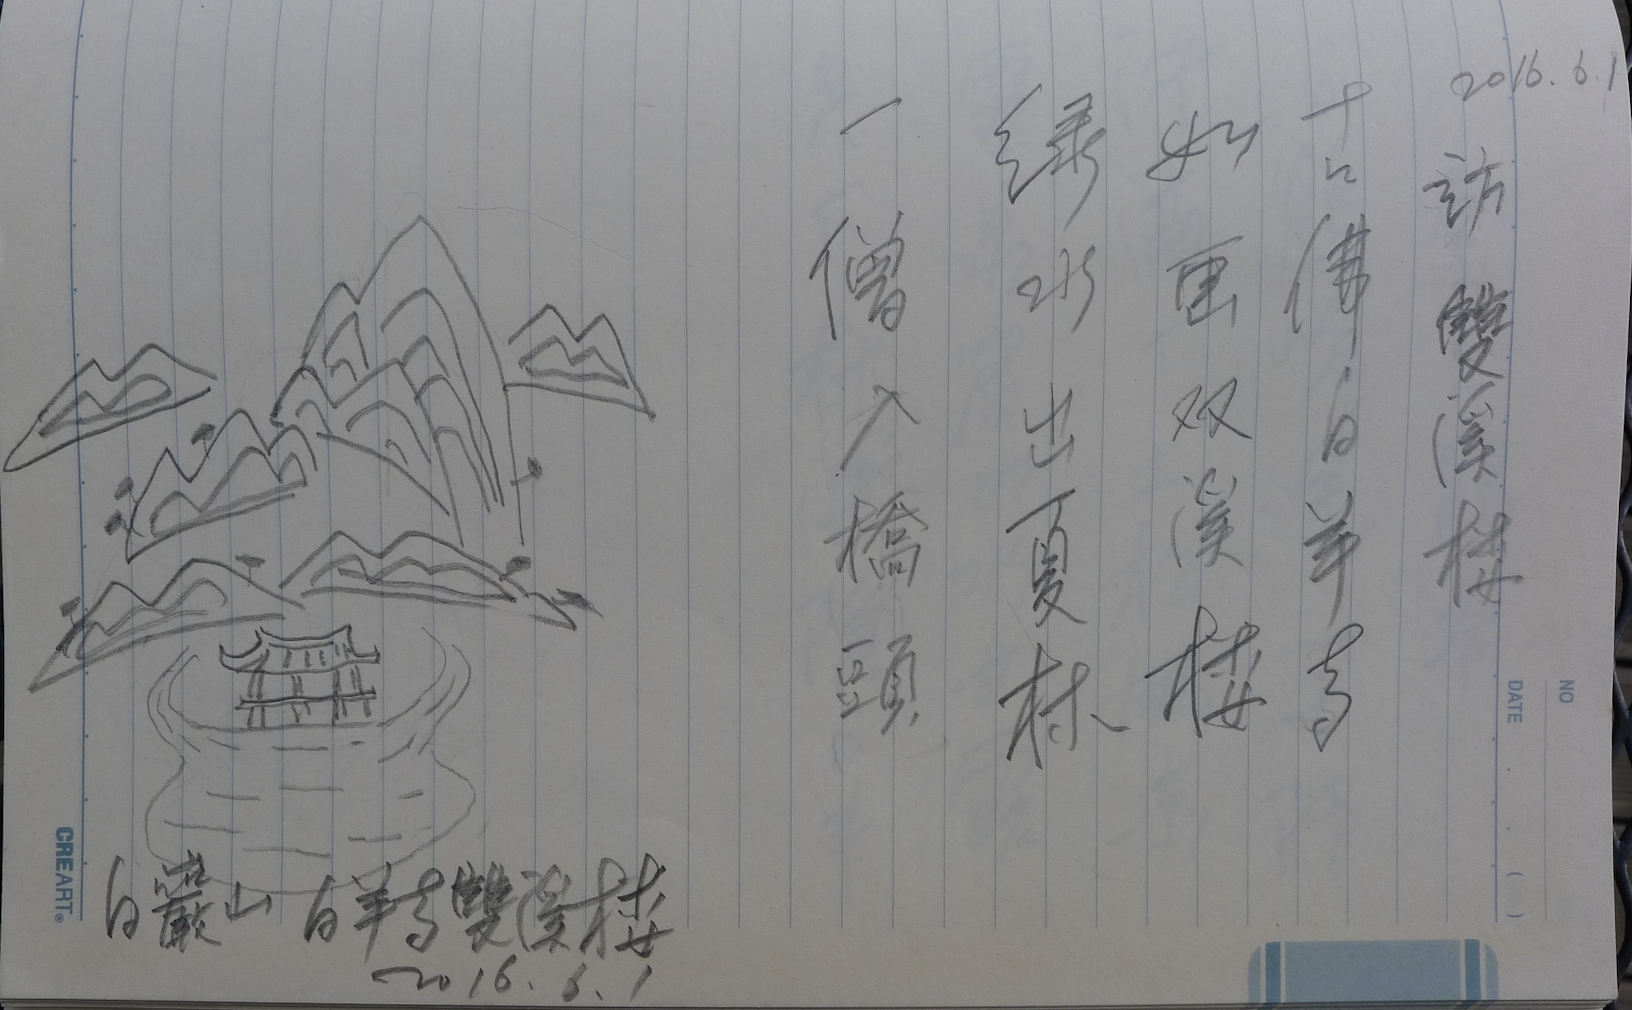 2016.6.1
訪雙溪楼
古佛白羊寺
如画双溪楼
绿水出夏林
一僧入橋頭
白巖山 白羊寺雙溪楼
2016.6.1
NO
DATE . . ( )
CREART®